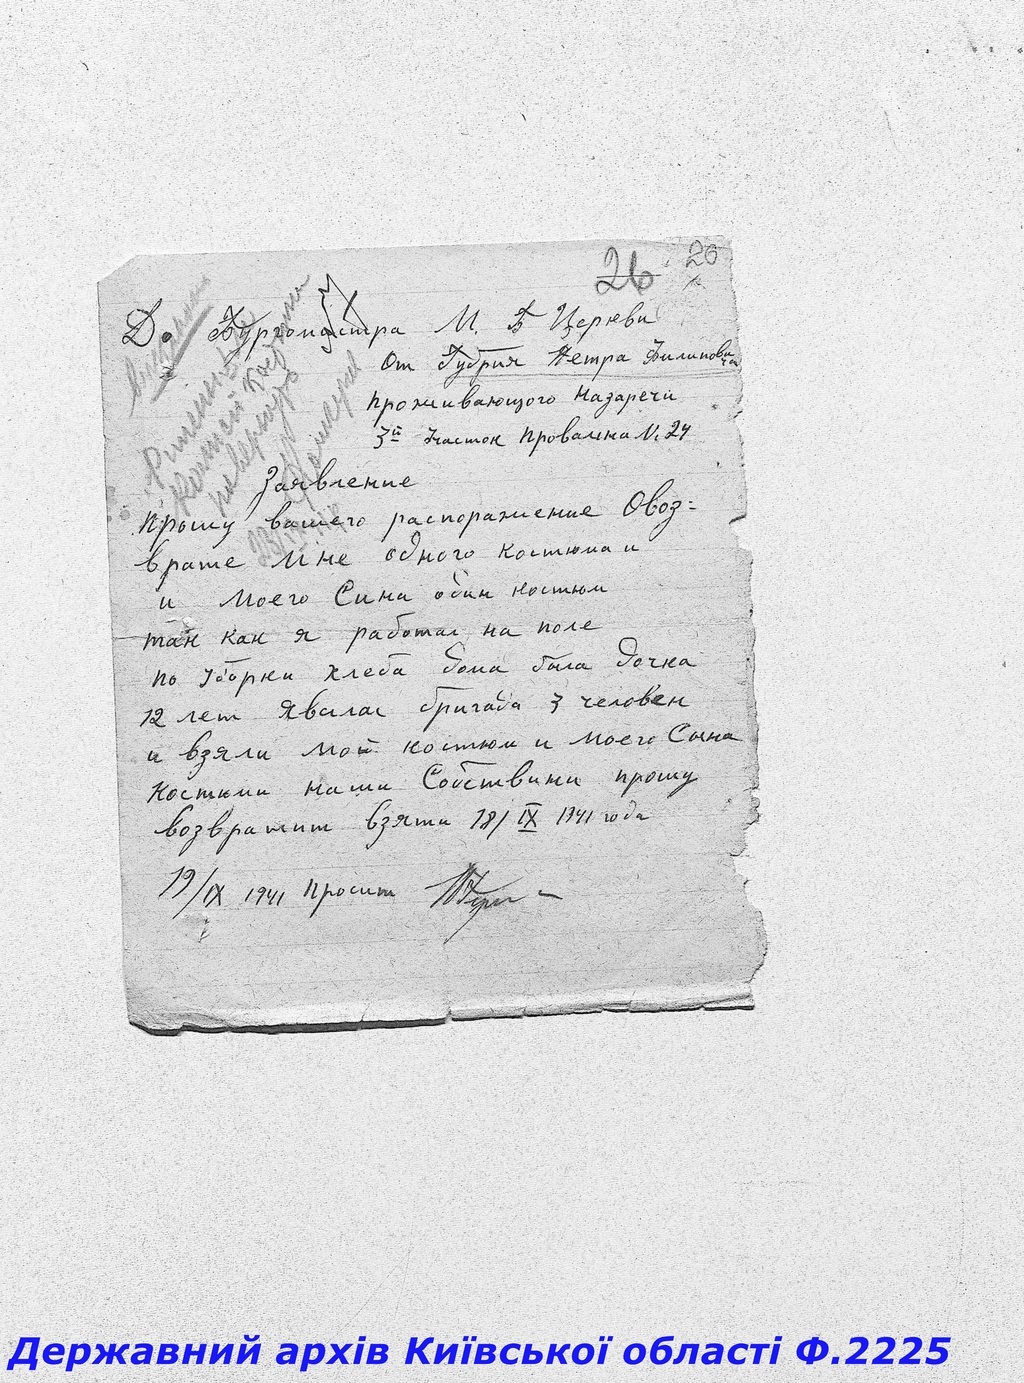 26 20
До Бургомистра М. Б Церкви
От Губрия Петра Филиповича
проживающого Назаречи
3й Участок Провална № 24
Заявление
Прошу вашего распоражение Овоз=
врате мне одного костюма и
и моего Сина один костюм
так как я работал на поле
по уборки хлеба дома била дочка
12 лет явилас бригада 3 человек
и взяли мой костюм и моего Сына
костюми наши Собствини прошу
возвратит взяти 18/IX 1941 года
19/IX 1941 Просит
Державний архів Київської області Ф.2225